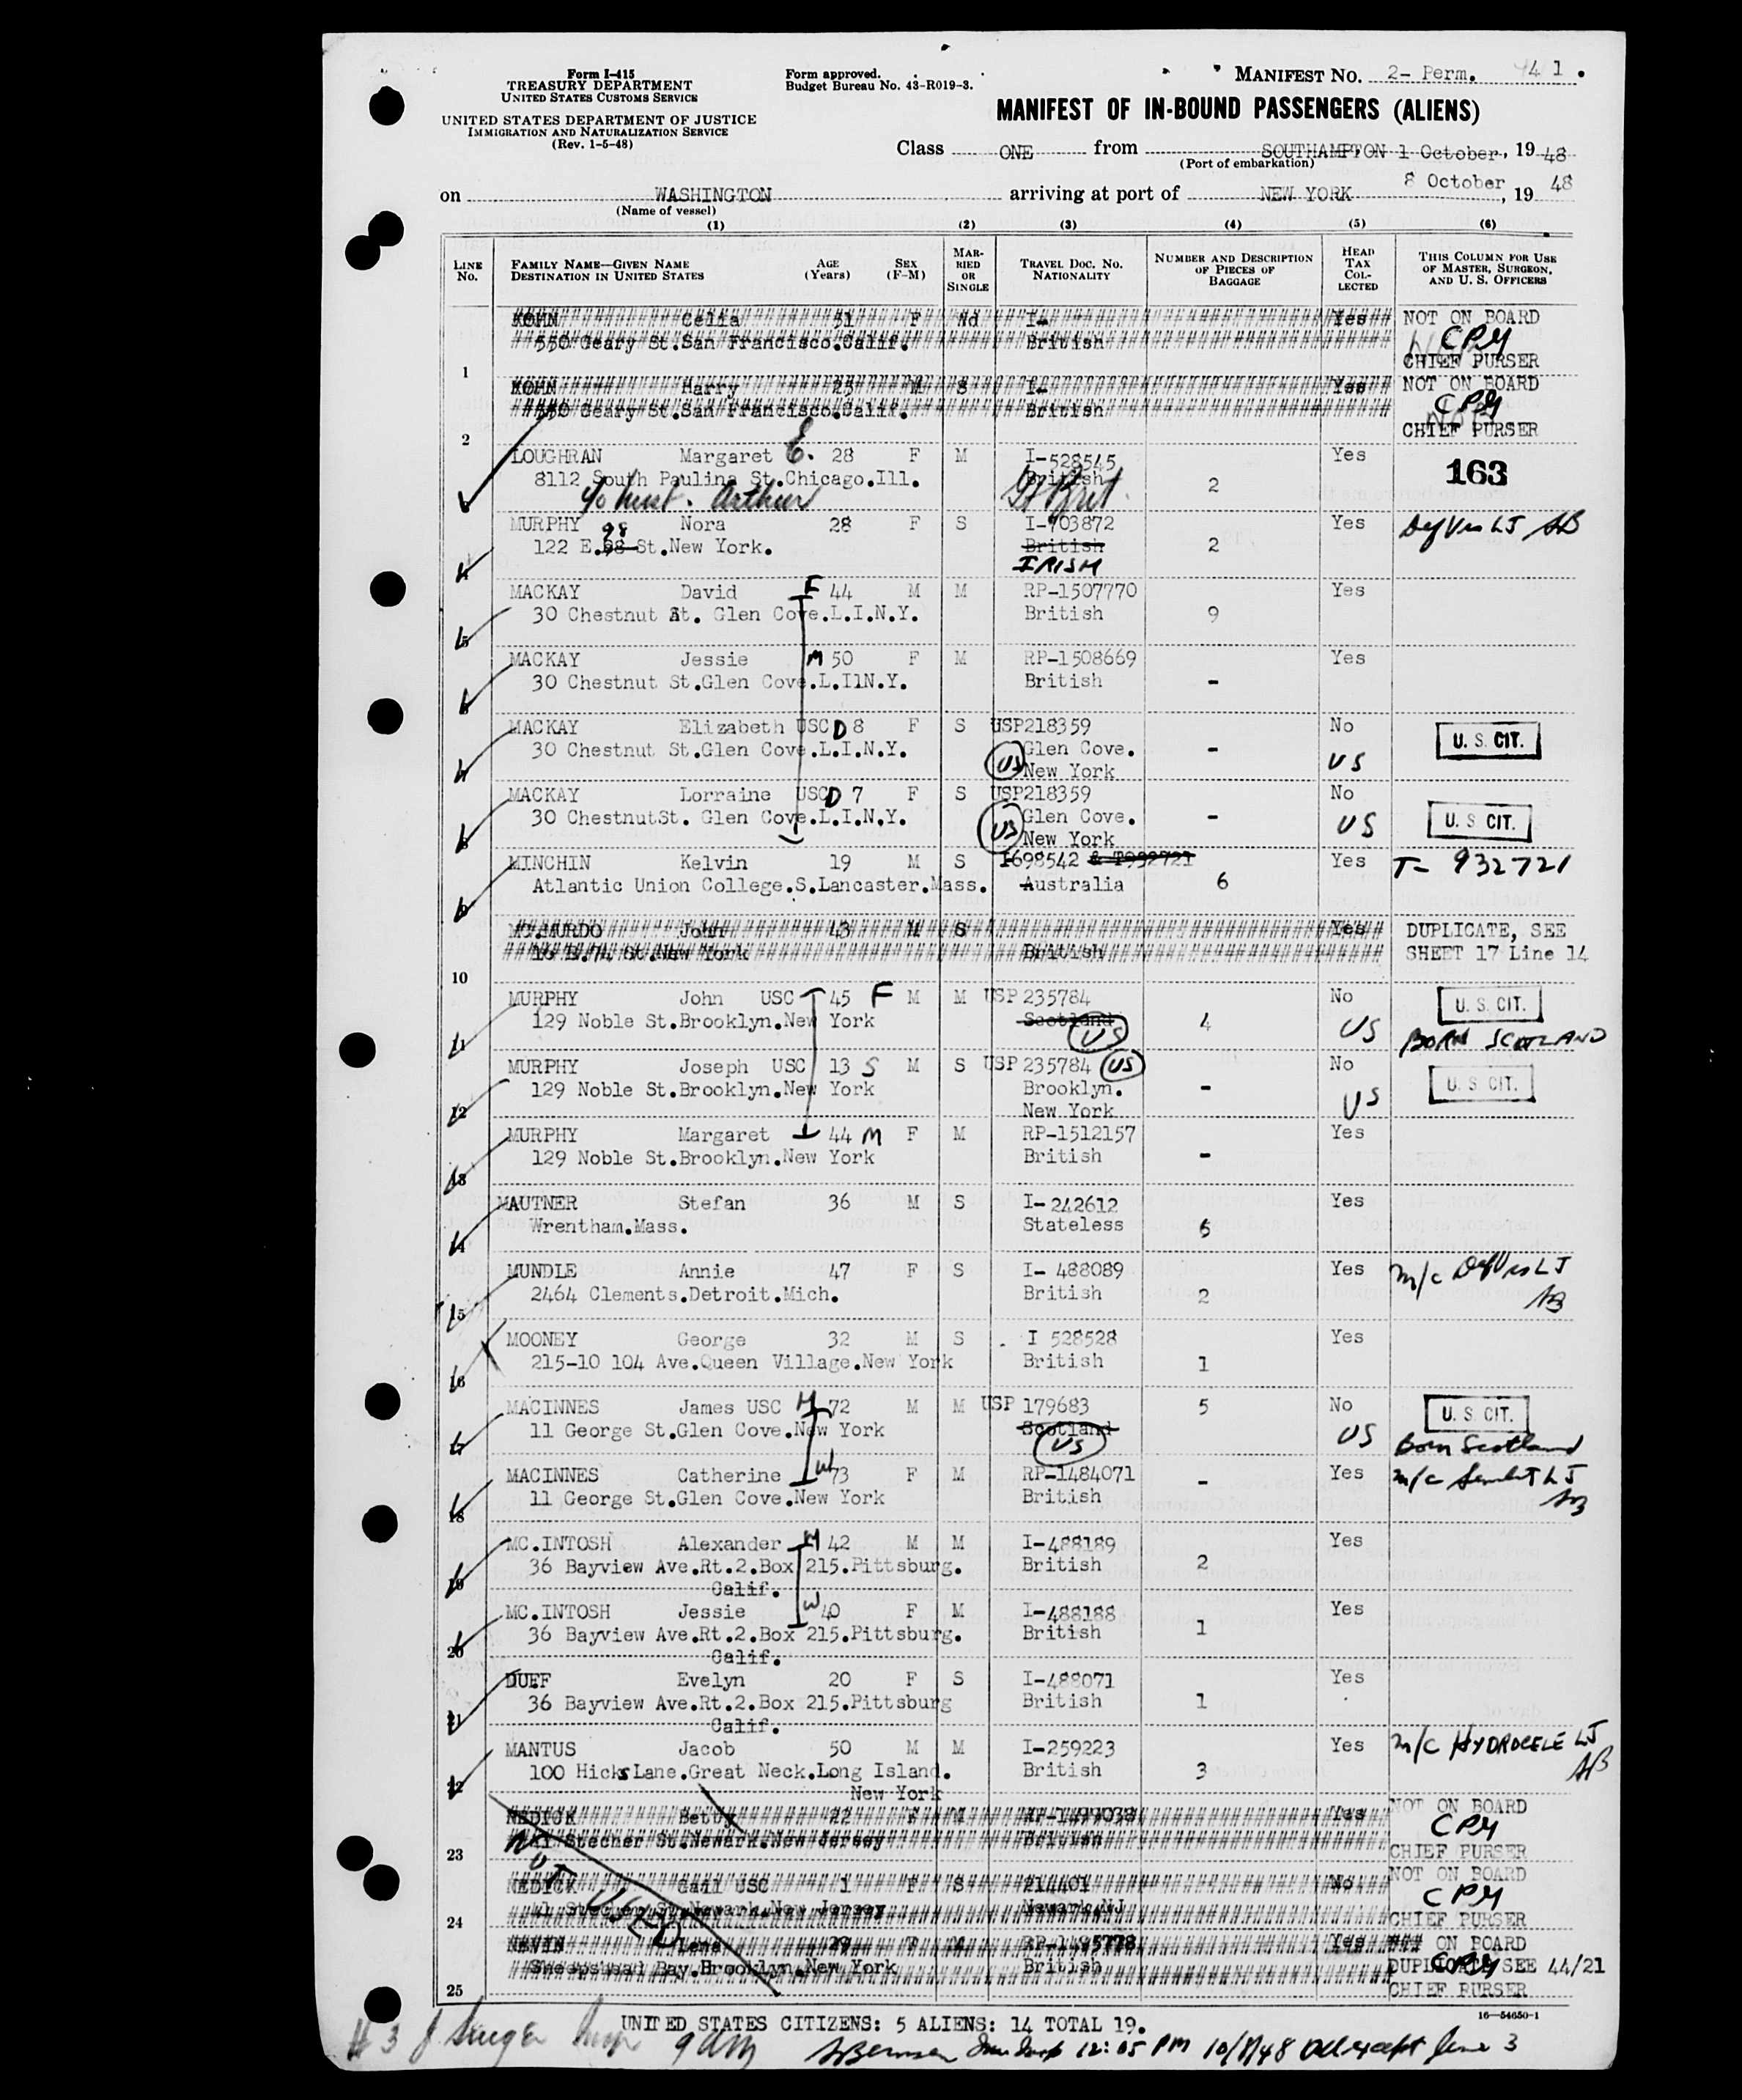 Form I-415
TREASURY DEPARTMENT
UNITED STATES CUSTOMS SERVICE
UNITED STATES DEPARTMENT OF JUSTICE
IMMIGRATION AND NATURALIZATION SERVICE
(Rev. 1-5-48)
Form approved.
Budget Bureau No. 43-R019-3.
MANIFEST NO. 2- Perm. 41.
MANIFEST OF IN-BOUND PASSENGERS (ALIENS)
Class ONE from SOUTHAMPTON 1 October, 19 48
(Port of embarkation)
on WASHINGTON arriving at port of NEW YORK 8 October, 19 48
(Name of vessel)
(1) (2) (3) (4) (5) (6)
LINE No. FAMILY NAME—GIVEN NAME DESTINATION IN UNITED STATES AGE (Years) SEX (F-M) MARRIED OR SINGLE TRAVEL DOC. NO. NATIONALITY NUMBER AND DESCRIPTION OF PIECES OF BAGGAGE HEAD TAX COLLECTED THIS COLUMN FOR USE OF MASTER, SURGEON, AND U. S. OFFICERS
KOHN Celia 51 F Wd I- Yes NOT ON BOARD
550 Geary St.San Francisco.Calif. British CPM
1 CHIEF PURSER
KOHN Harry 25 M S I- Yes NOT ON BOARD
550 Geary St.San Francisco.Calif. British CPM
2 CHIEF PURSER
LOUGHRAN Margaret E. 28 F M I-528545 Yes 163
8112 South Paulina St.Chicago.Ill. British 2
c/o husb. Arthur Gt Brit.
3
MURPHY Nora 28 F S I-703872 Yes Def Vis LJ AB
122 E.98 St.New York. British 2
4 IRISH
MACKAY David F 44 M M RP-1507770 Yes
30 Chestnut St. Glen Cove.L.I.N.Y. British 9
5
MACKAY Jessie M 50 F M RP-1508669 Yes
30 Chestnut St.Glen Cove.L.I1N.Y. British -
6
MACKAY Elizabeth USC D 8 F S USP218359 No U. S. CIT.
30 Chestnut St.Glen Cove.L.I.N.Y. Glen Cove. - US
7 US New York
MACKAY Lorraine USC D 7 F S USP218359 No U. S. CIT.
30 ChestnutSt. Glen Cove.L.I.N.Y. Glen Cove. - US
8 US New York
MINCHIN Kelvin 19 M S I698542 & T932721 Yes T- 932721
Atlantic Union College.S.Lancaster.Mass. Australia 6
9
MC.MURDO John 43 M S Yes DUPLICATE, SEE
16 E.74 St.New York British SHEET 17 Line 14
10
MURPHY John USC 45 F M M USP 235784 No U. S. CIT.
129 Noble St.Brooklyn.New York Scotland US 4 US BORN SCOTLAND
11
MURPHY Joseph USC 13 S M S USP 235784 US No U. S. CIT.
129 Noble St.Brooklyn.New York Brooklyn. - US
12 New York
MURPHY Margaret 44 M F M RP-1512157 Yes
129 Noble St.Brooklyn.New York British -
13
MAUTNER Stefan 36 M S I-242612 Yes
Wrentham.Mass. Stateless 6
14
MUNDLE Annie 47 F S I- 488089 Yes m/c Def Vis LJ
2464 Clements.Detroit.Mich. British 2 AB
15
MOONEY George 32 M S I 528528 Yes
215-10 104 Ave.Queen Village.New York British 1
16
MACINNES James USC H 72 M M USP 179683 5 No U. S. CIT.
11 George St.Glen Cove.New York Scotland US US Born Scotland
17
MACINNES Catherine W 73 F M RP-1484071 - Yes m/c Senility LJ
11 George St.Glen Cove.New York British AB
18
MC.INTOSH Alexander H 42 M M I-488189 Yes
36 Bayview Ave.Rt.2.Box 215.Pittsburg. British 2
19 Calif.
MC.INTOSH Jessie W 40 F M I-488188 Yes
36 Bayview Ave.Rt.2.Box 215.Pittsburg. British 1
20 Calif.
DUFF Evelyn 20 F S I-488071 Yes
36 Bayview Ave.Rt.2.Box 215.Pittsburg British 1
21 Calif.
MANTUS Jacob 50 M M I-259223 Yes m/c HYDROCELE LJ
100 Hicks Lane.Great Neck.Long Island. British 3 AB
22 New York
NEDICK Betty 22 F M RP-1499038 Yes NOT ON BOARD
Stecher St.Newark.New Jersey British CPM
23 CHIEF PURSER
NEDICK Gail USC 1 F S 214401 No NOT ON BOARD
Stecher St.Newark.New Jersey Newark.NJ CPM
24 CHIEF PURSER
NEVIN Lena 29 F M RP-1495778 Yes ### ON BOARD
Sheepshead Bay.Brooklyn.New York British DUPLICATE SEE 44/21
25 CPM CHIEF PURSER
NOT USED
16—54650-1
UNITED STATES CITIZENS: 5 ALIENS: 14 TOTAL 19.
# 3 J Singer Insp 9 AM
12:05 PM 10/8/48 All except line 3